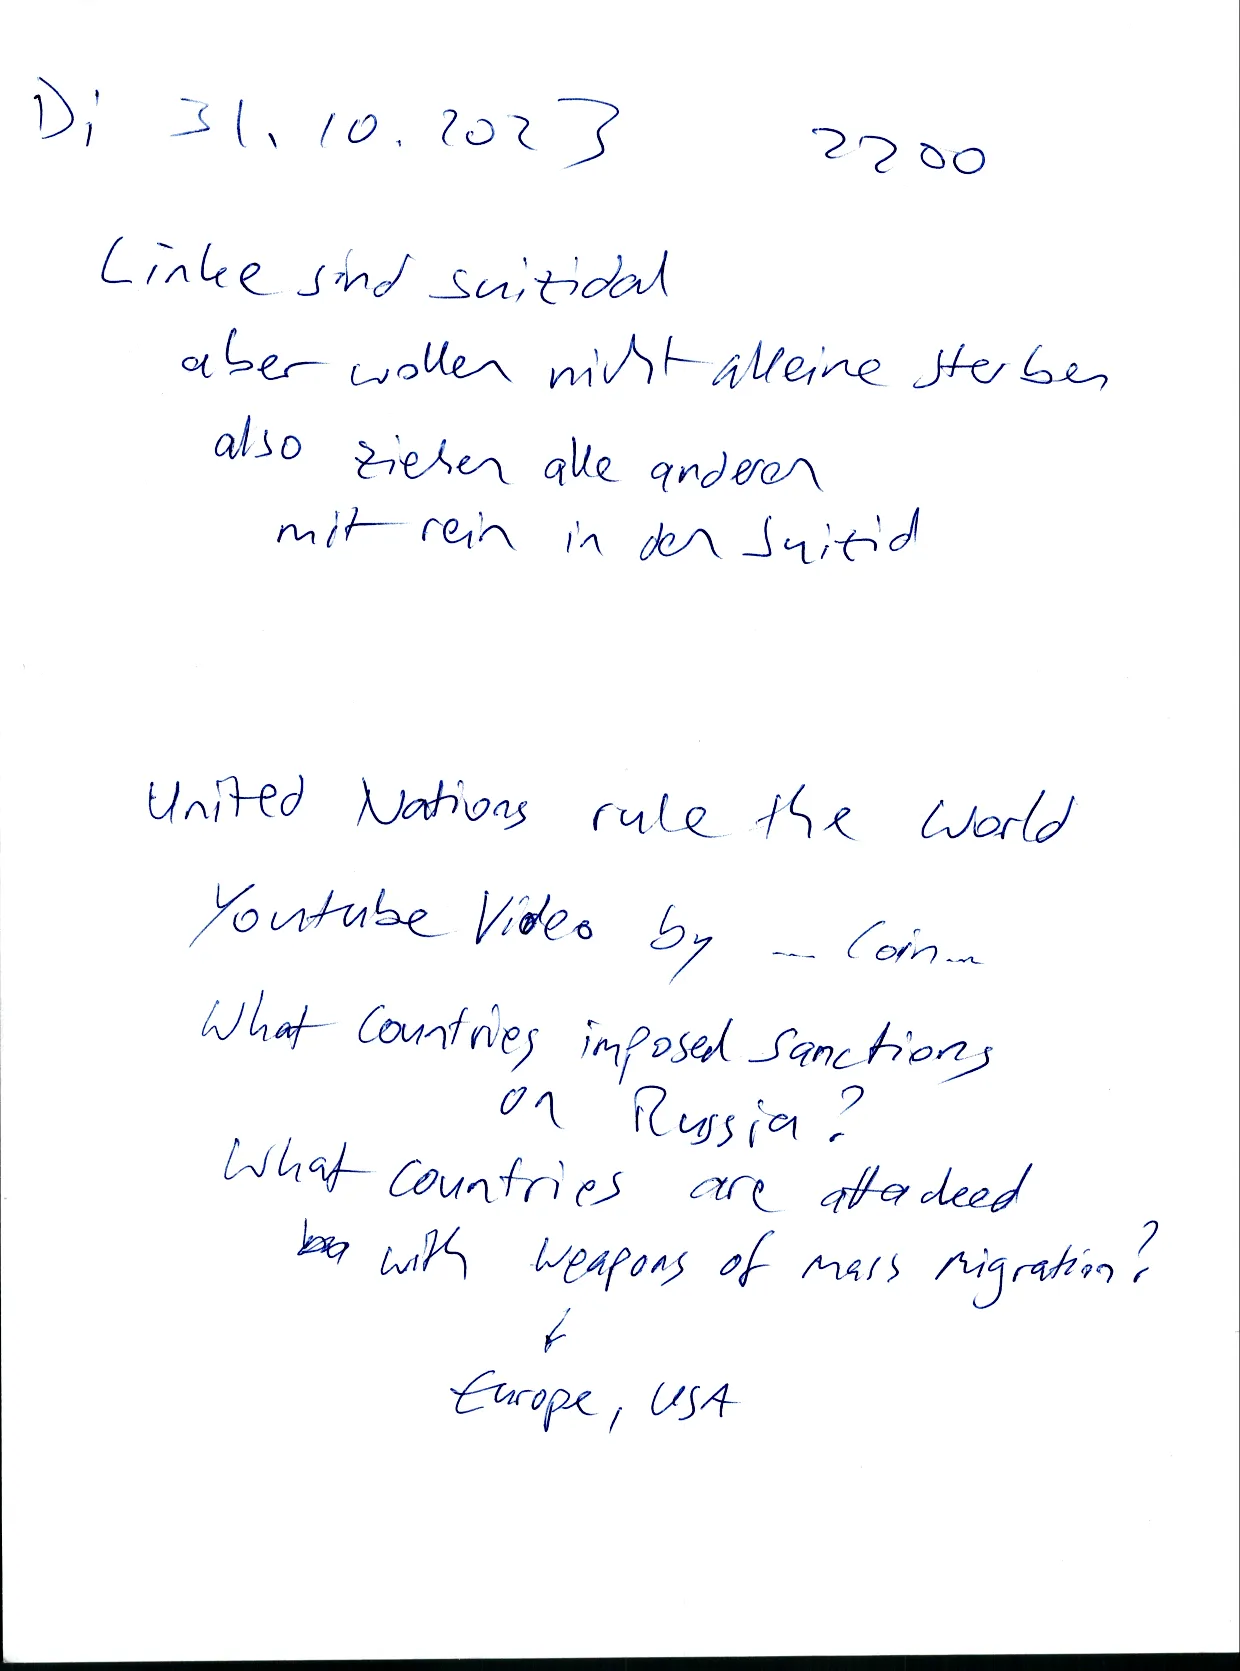 Di 31.10.2023 2200
Linke sind suizidal
aber wollen nicht alleine sterben
also ziehen alle anderen
mit rein in den Suizid
United Nations rule the World
Youtube Video by ... Coin...
What Countries imposed Sanctions
on Russia?
What countries are attacked
with weapons of mass migration?
Europe, USA